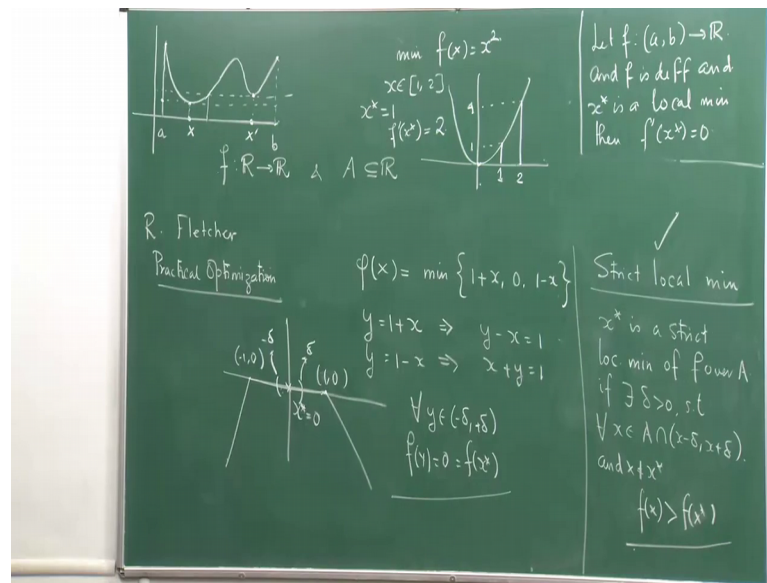 a x x' b
f: R→R & A ⊆ R
min f(x) = x²
x ∈ [1, 2]
x* = 1
f'(x*) = 2
4
1
1 2
Let f: (a, b) → R
and f is diff and
x* is a local min
then f'(x*) = 0
R. Fletcher
Practical Optimization
φ(x) = min {1+x, 0, 1-x}
y = 1+x ⇒ y - x = 1
y = 1-x ⇒ x + y = 1
-δ δ
(-1,0) (1,0)
x* = 0
∀ y ∈ (-δ, +δ)
f(y) = 0 = f(x*)
✓
Strict local min
x* is a strict
loc min of f over A
if ∃ δ>0, s.t
∀ x ∈ A ∩ (x-δ, x+δ).
and x ≠ x*
f(x) > f(x*)